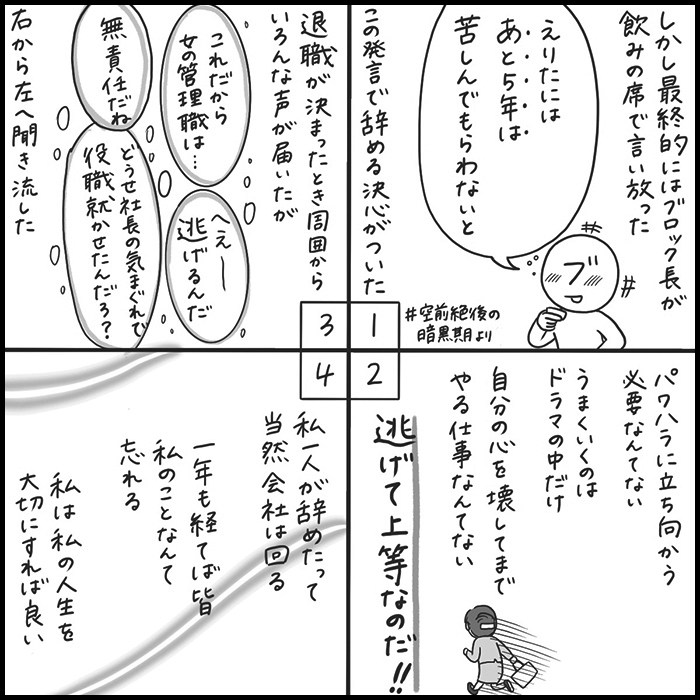 しかし最終的にはブロック長が
飲みの席で言い放った
えりたには
あと5年は
苦しんでもらわないと
ブ
この発言で辞める決心がついた
#空前絶後の
暗黒期より
1
パワハラに立ち向かう
必要なんてない
うまくいくのは
ドラマの中だけ
自分の心を壊してまで
やる仕事なんてない
逃げて上等なのだ!!
2
退職が決まったとき周囲から
いろんな声が届いたが
これだから
女の管理職は…
へぇー
逃げるんだ
無責任だね
どうせ社長の気まぐれで
役職就かせたんだろ?
右から左へ聞き流した
3
4
私一人が辞めたって
当然会社は回る
一年も経てば皆
私のことなんて
忘れる
私は私の人生を
大切にすれば良い